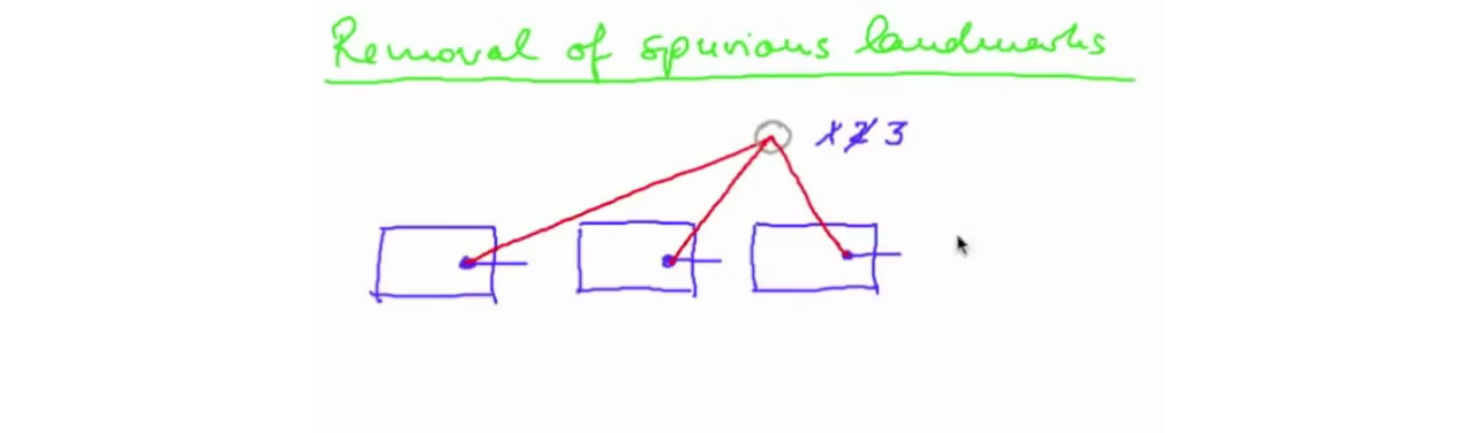 Removal of spurious landmarks
1 2 3